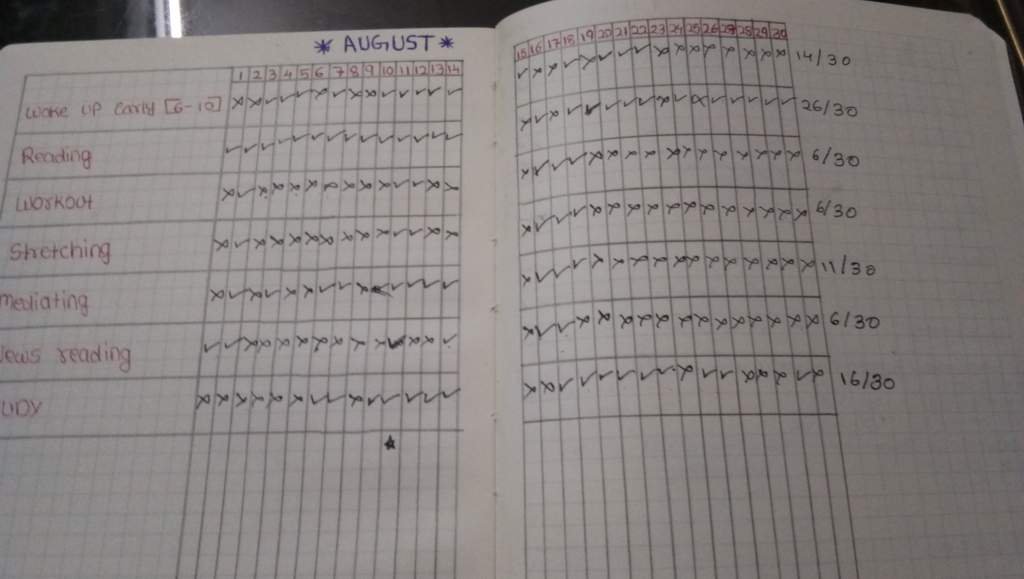 * AUGUST *
1 2 3 4 5 6 7 8 9 10 11 12 13 14
15 16 17 18 19 20 21 22 23 24 25 26 27 28 29 30
Wake up early [6-10] 14/30
Reading 26/30
Workout 6/30
Stretching 6/30
mediating 11/30
News reading 6/30
UDY 16/30